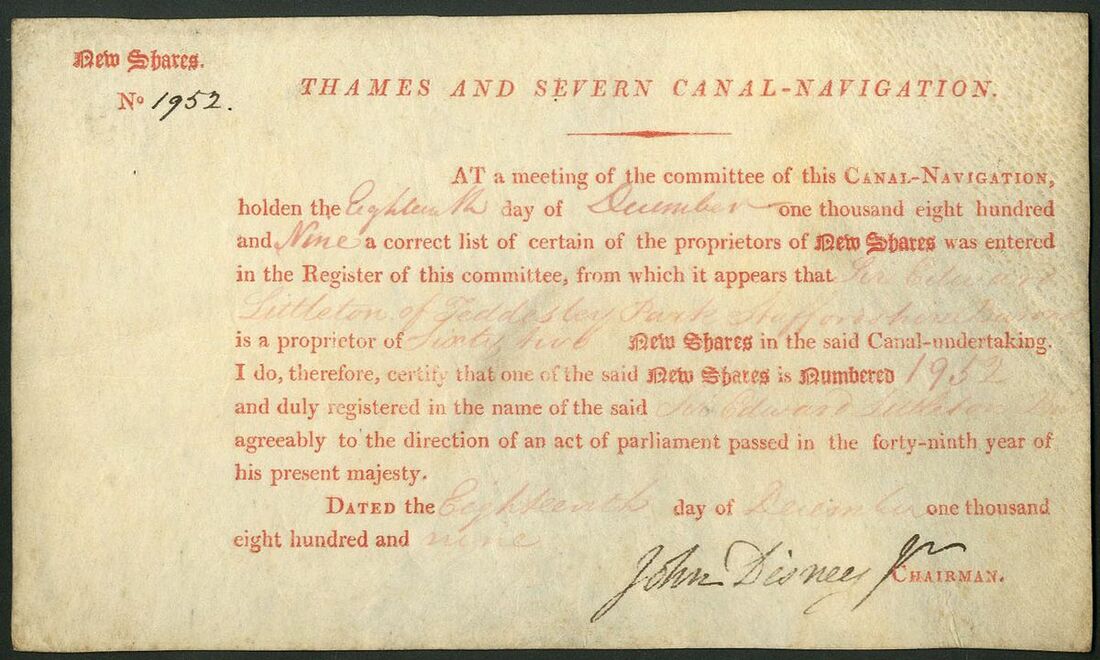 New Shares.
No 1952.
THAMES AND SEVERN CANAL-NAVIGATION.
AT a meeting of the committee of this CANAL-NAVIGATION,
holden the Eighteenth day of December one thousand eight hundred
and Nine a correct list of certain of the proprietors of New Shares was entered
in the Register of this committee, from which it appears that Sir Edward
Littleton of Teddesley Park Staffordshire
is a proprietor of Sixty two New Shares in the said Canal-undertaking.
I do, therefore, certify that one of the said New Shares is Numbered 1952
and duly registered in the name of the said Sir Edward Littleton
agreeably to the direction of an act of parliament passed in the forty-ninth year of
his present majesty.
DATED the Eighteenth day of December one thousand
eight hundred and nine
John Disney Jr
CHAIRMAN.